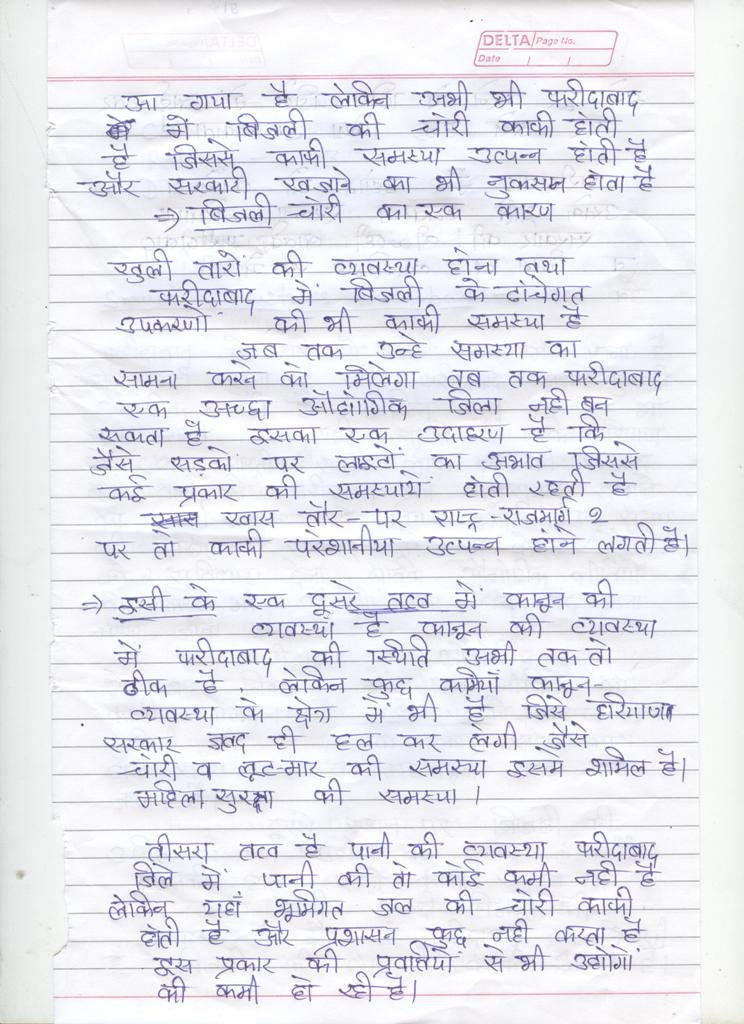 DELTA Page No.
Date
आ गया है लेकिन अभी भी फरीदाबाद
में बिजली की चोरी काफी होती
है जिससे काफी समस्या उत्पन्न होती है
और सरकारी खजाने का भी नुकसान होता है
⇒ बिजली चोरी का एक कारण
खुली तारों की व्यवस्था होना तथा
फरीदाबाद में बिजली के ढांचेगत
उपकरणों की भी काफी समस्या है
जब तक उन्हे समस्या का
सामना करने को मिलेगा तब तक फरीदाबाद
एक अच्छा औद्योगिक जिला नही बन
सकता है इसका एक उदाहरण है कि
जैसे सड़को पर लाइटों का अभाव जिससे
कई प्रकार की समस्यायें होती रहती है
खास तौर-पर राष्ट्र-राजमार्ग 2
पर तो काफी परेशानीया उत्पन्न होने लगती है।
⇒ इसी के एक दूसरे तत्व में कानून की
व्यवस्था है कानून की व्यवस्था
में फरीदाबाद की स्थिति अभी तक तो
ठीक है, लेकिन कुछ कमियाँ कानून-
व्यवस्था के क्षेत्र में भी है जिसे हरियाणा
सरकार जल्द ही हल कर लेगी जैसे
चोरी व लूट-मार की समस्या इसमे शामिल है।
महिला सुरक्षा की समस्या।
तीसरा तत्व है पानी की व्यवस्था फरीदाबाद
जिले में पानी की तो कोई कमी नही है
लेकिन यहाँ भूमिगत जल की चोरी काफी
होती है और प्रशासन कुछ नही करता है
इस प्रकार की प्रवतियों से भी उद्योगों
की कमी हो रही है।